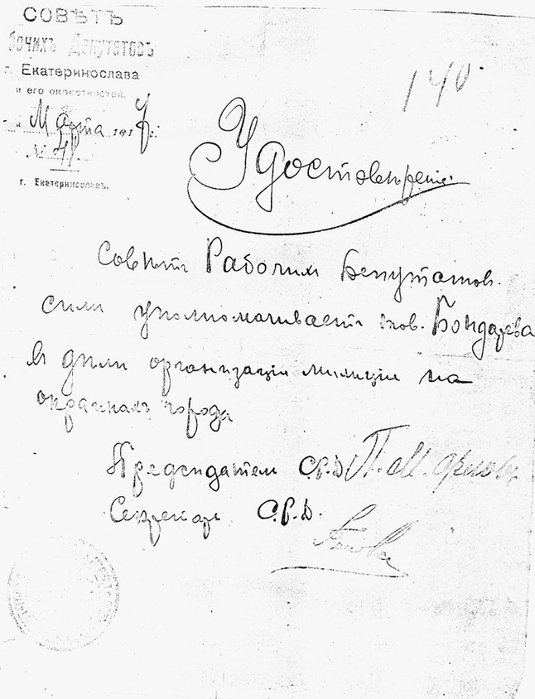 СОВѢТЪ
бочихъ Депутатовъ
г. Екатеринослава
и его окрестностей.
Марта 1917 г.
№
г. Екатеринославъ.
140.
Удостовѣреніе.
Совѣтъ Рабочихъ Депутатов.
симъ уполномачиваетъ тов. Бондарева
въ дѣли организаціи милиціи на
окраинахъ города
Председатель С.Р.Д.
Секретарь С.Р.Д.